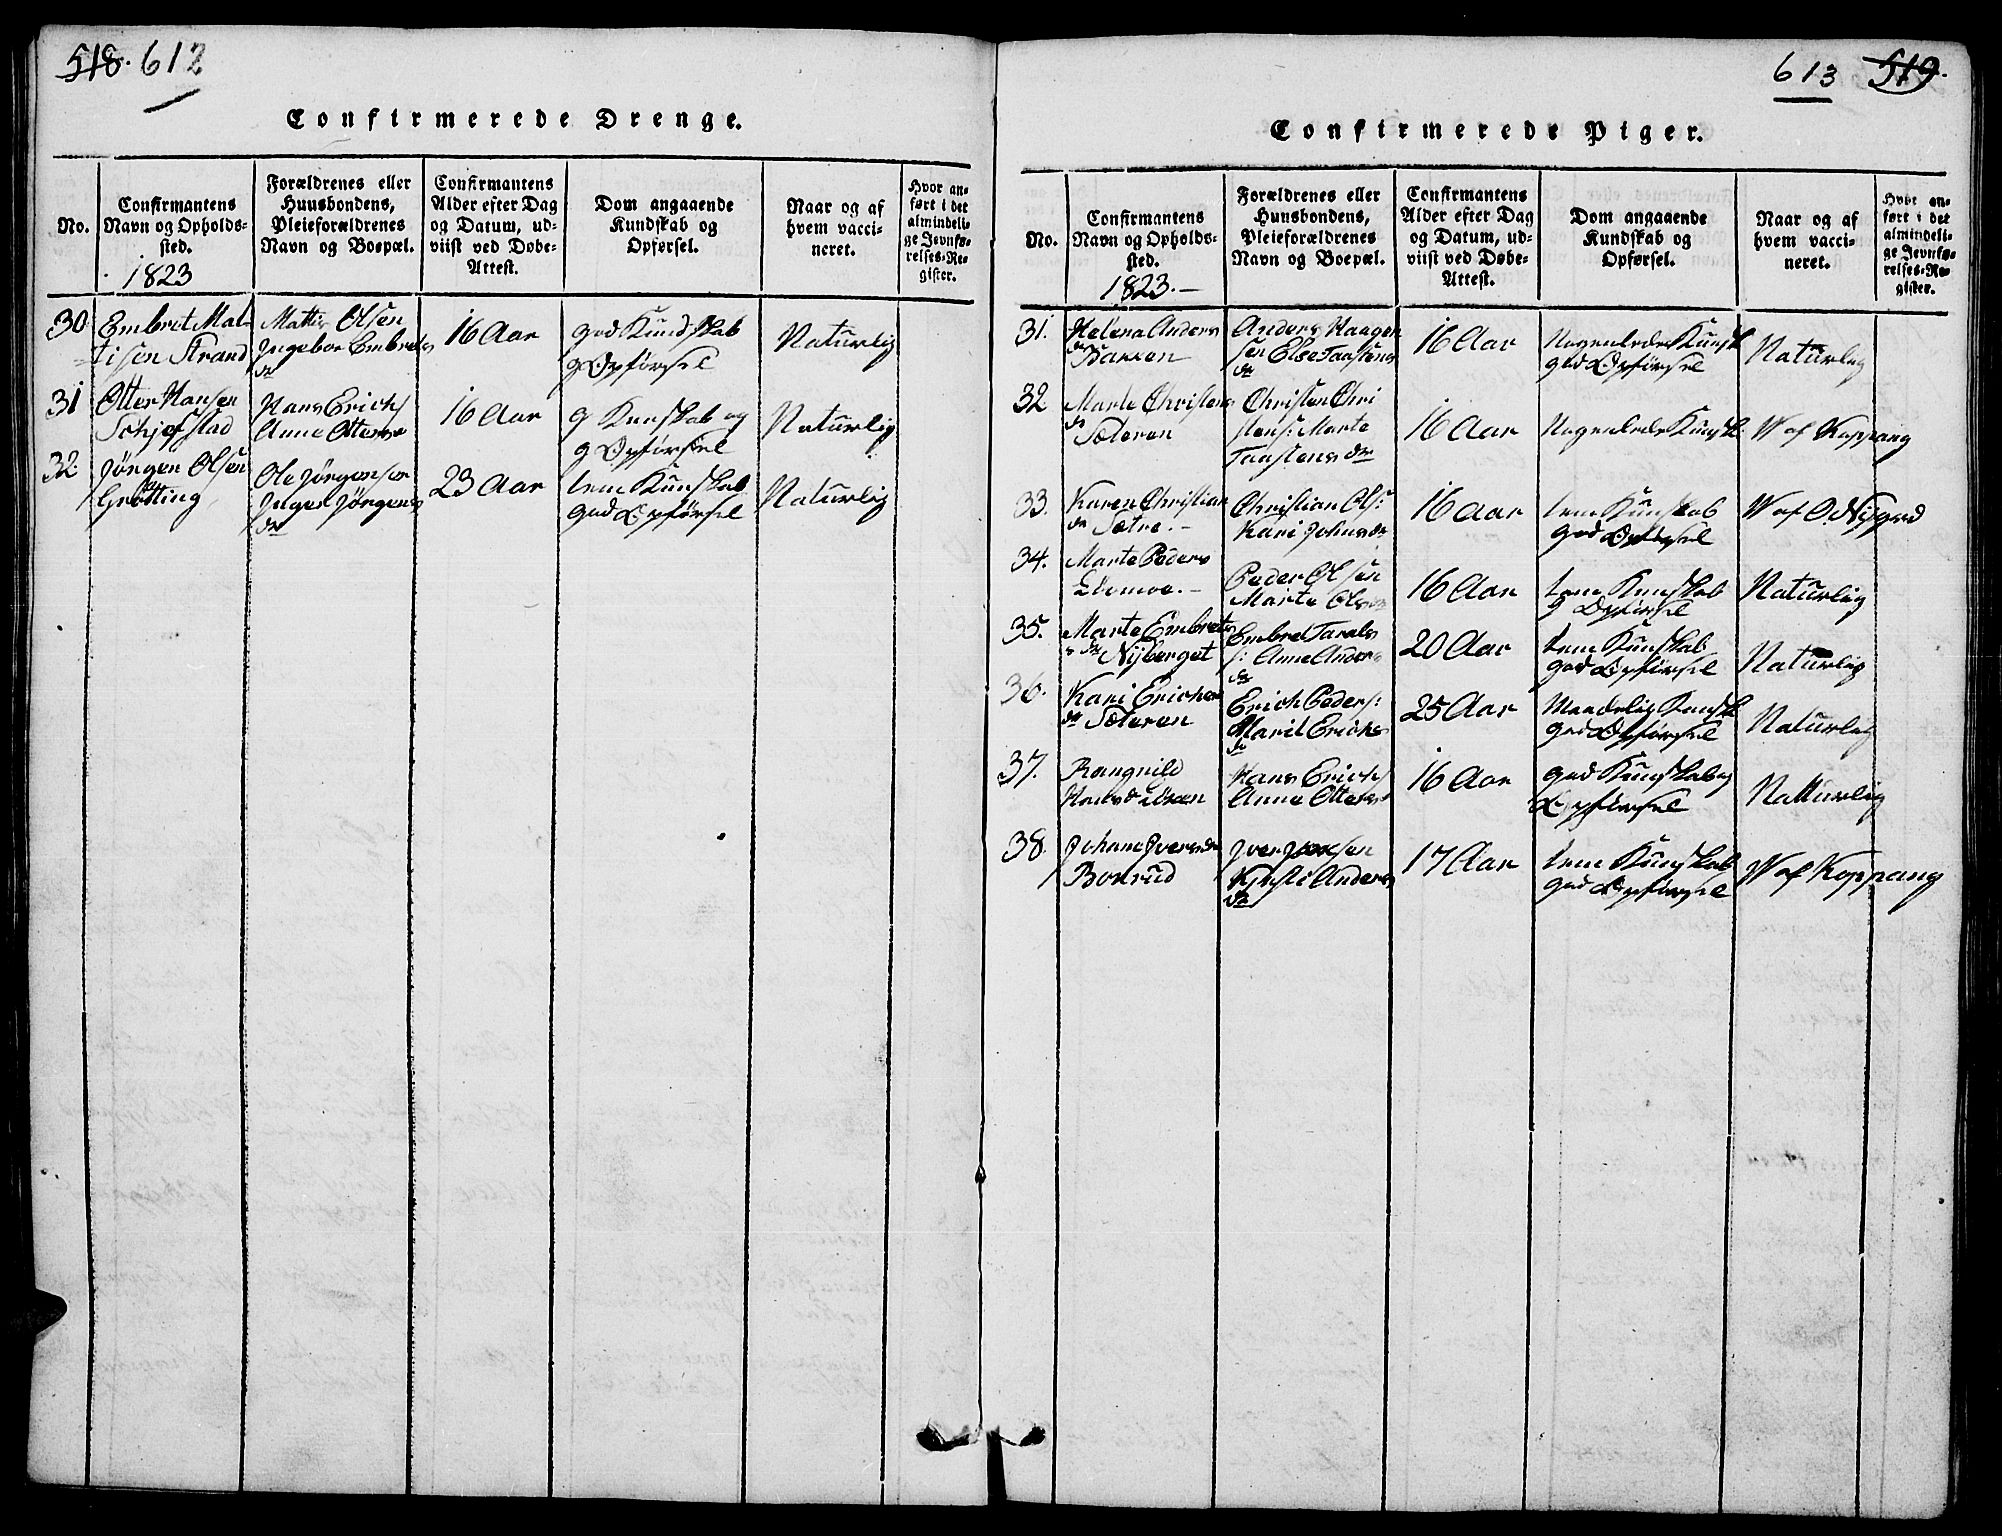 518. 612
Confirmerede Drenge.
No.
Confirmantens
Navn og Opholds-
sted.
1823
Forældrenes eller
Huusbondens,
Pleieforældrenes
Navn og Boepæl.
Confirmantens
Alder efter Dag
og Datum, ud-
viist ved Døbe-
Attest.
Dom angaaende
Kundskab og
Opførsel.
Naar og af
hvem vacci-
neret.
Hvor an-
ført i det
almindeli-
ge Jevnfø-
relses-Re-
gister.
30
Embret Mat
tisen Strand
Mattis Olsen
Ingebor Embrets
dr
16 Aar
god Kundskab
g Opførsel
Naturlig
31
Otter Hansen
Schjefstad
Hans Erichs
Anne Otters
16 Aar
g Kunskab og
g Opførsel
Naturlig
32.
Jørgen Olsen
Grøtting
Ole Jørgensen
Inger Jørgens
dr
23 Aar
tem Kunskab
god Opførsel
Naturlig
613 519.
Confirmerede Piger.
No.
Confirmantens
Navn og Opholds-
sted.
1823.-
Forældrenes eller
Huusbondens,
Pleieforældrenes
Navn og Boepæl.
Confirmantens
Alder efter Dag
og Datum, ud-
viist ved Døbe-
Attest.
Dom angaaende
Kundskab og
Opførsel.
Naar og af
hvem vacci-
neret.
Hvor an-
ført i det
almindeli-
ge Jevnfø-
relses-Re-
gister.
31.
Helena Anders
dr Bakken
Anders Haagen
sen Else Taastens
dr
16 Aar
Nogenlede Kunsk
god Opførsel
Naturlig
32
Marte Christens
dr Sæteren
Christen Chri
stens: Marte
Taastens dr
16 Aar
Nogenlede Kunsk.
W af Koppang
33.
Karen Christian
dr Sætre.-
Christian Ols:
Kari Johns dr
16 Aar
tem Kunskab
god Opførsel
W af O. Nijgrd
34.
Marte Peders
Løvmoe.-
Peder Olsen
Marte Ols
16 Aar
tem Kunskab
g Opførsel
Naturlig
35.
Marte Embrets
dr Nijberget
Embret Tarals
s: Anne Anders
dr
20 Aar
tem Kunskab
god Opførsel
Naturlig
36.
Kari Erichs
dr Sæteren
Erich Peders:
Marit Erichs
dr
25 Aar
Maadelig Kunsk
god Opførsel
Naturlig
37.
Rangnild
Hansdr Løken
Hans Erichs
Anne Otters
16 Aar
god Kunskab og
Opførsel
Natturlig
38.
Johane Iversdr
Bonrud
Iver Joensen
Kjersti Anders
dr
17 Aar
tem Kunskab
god Opførsel
W af Koppang